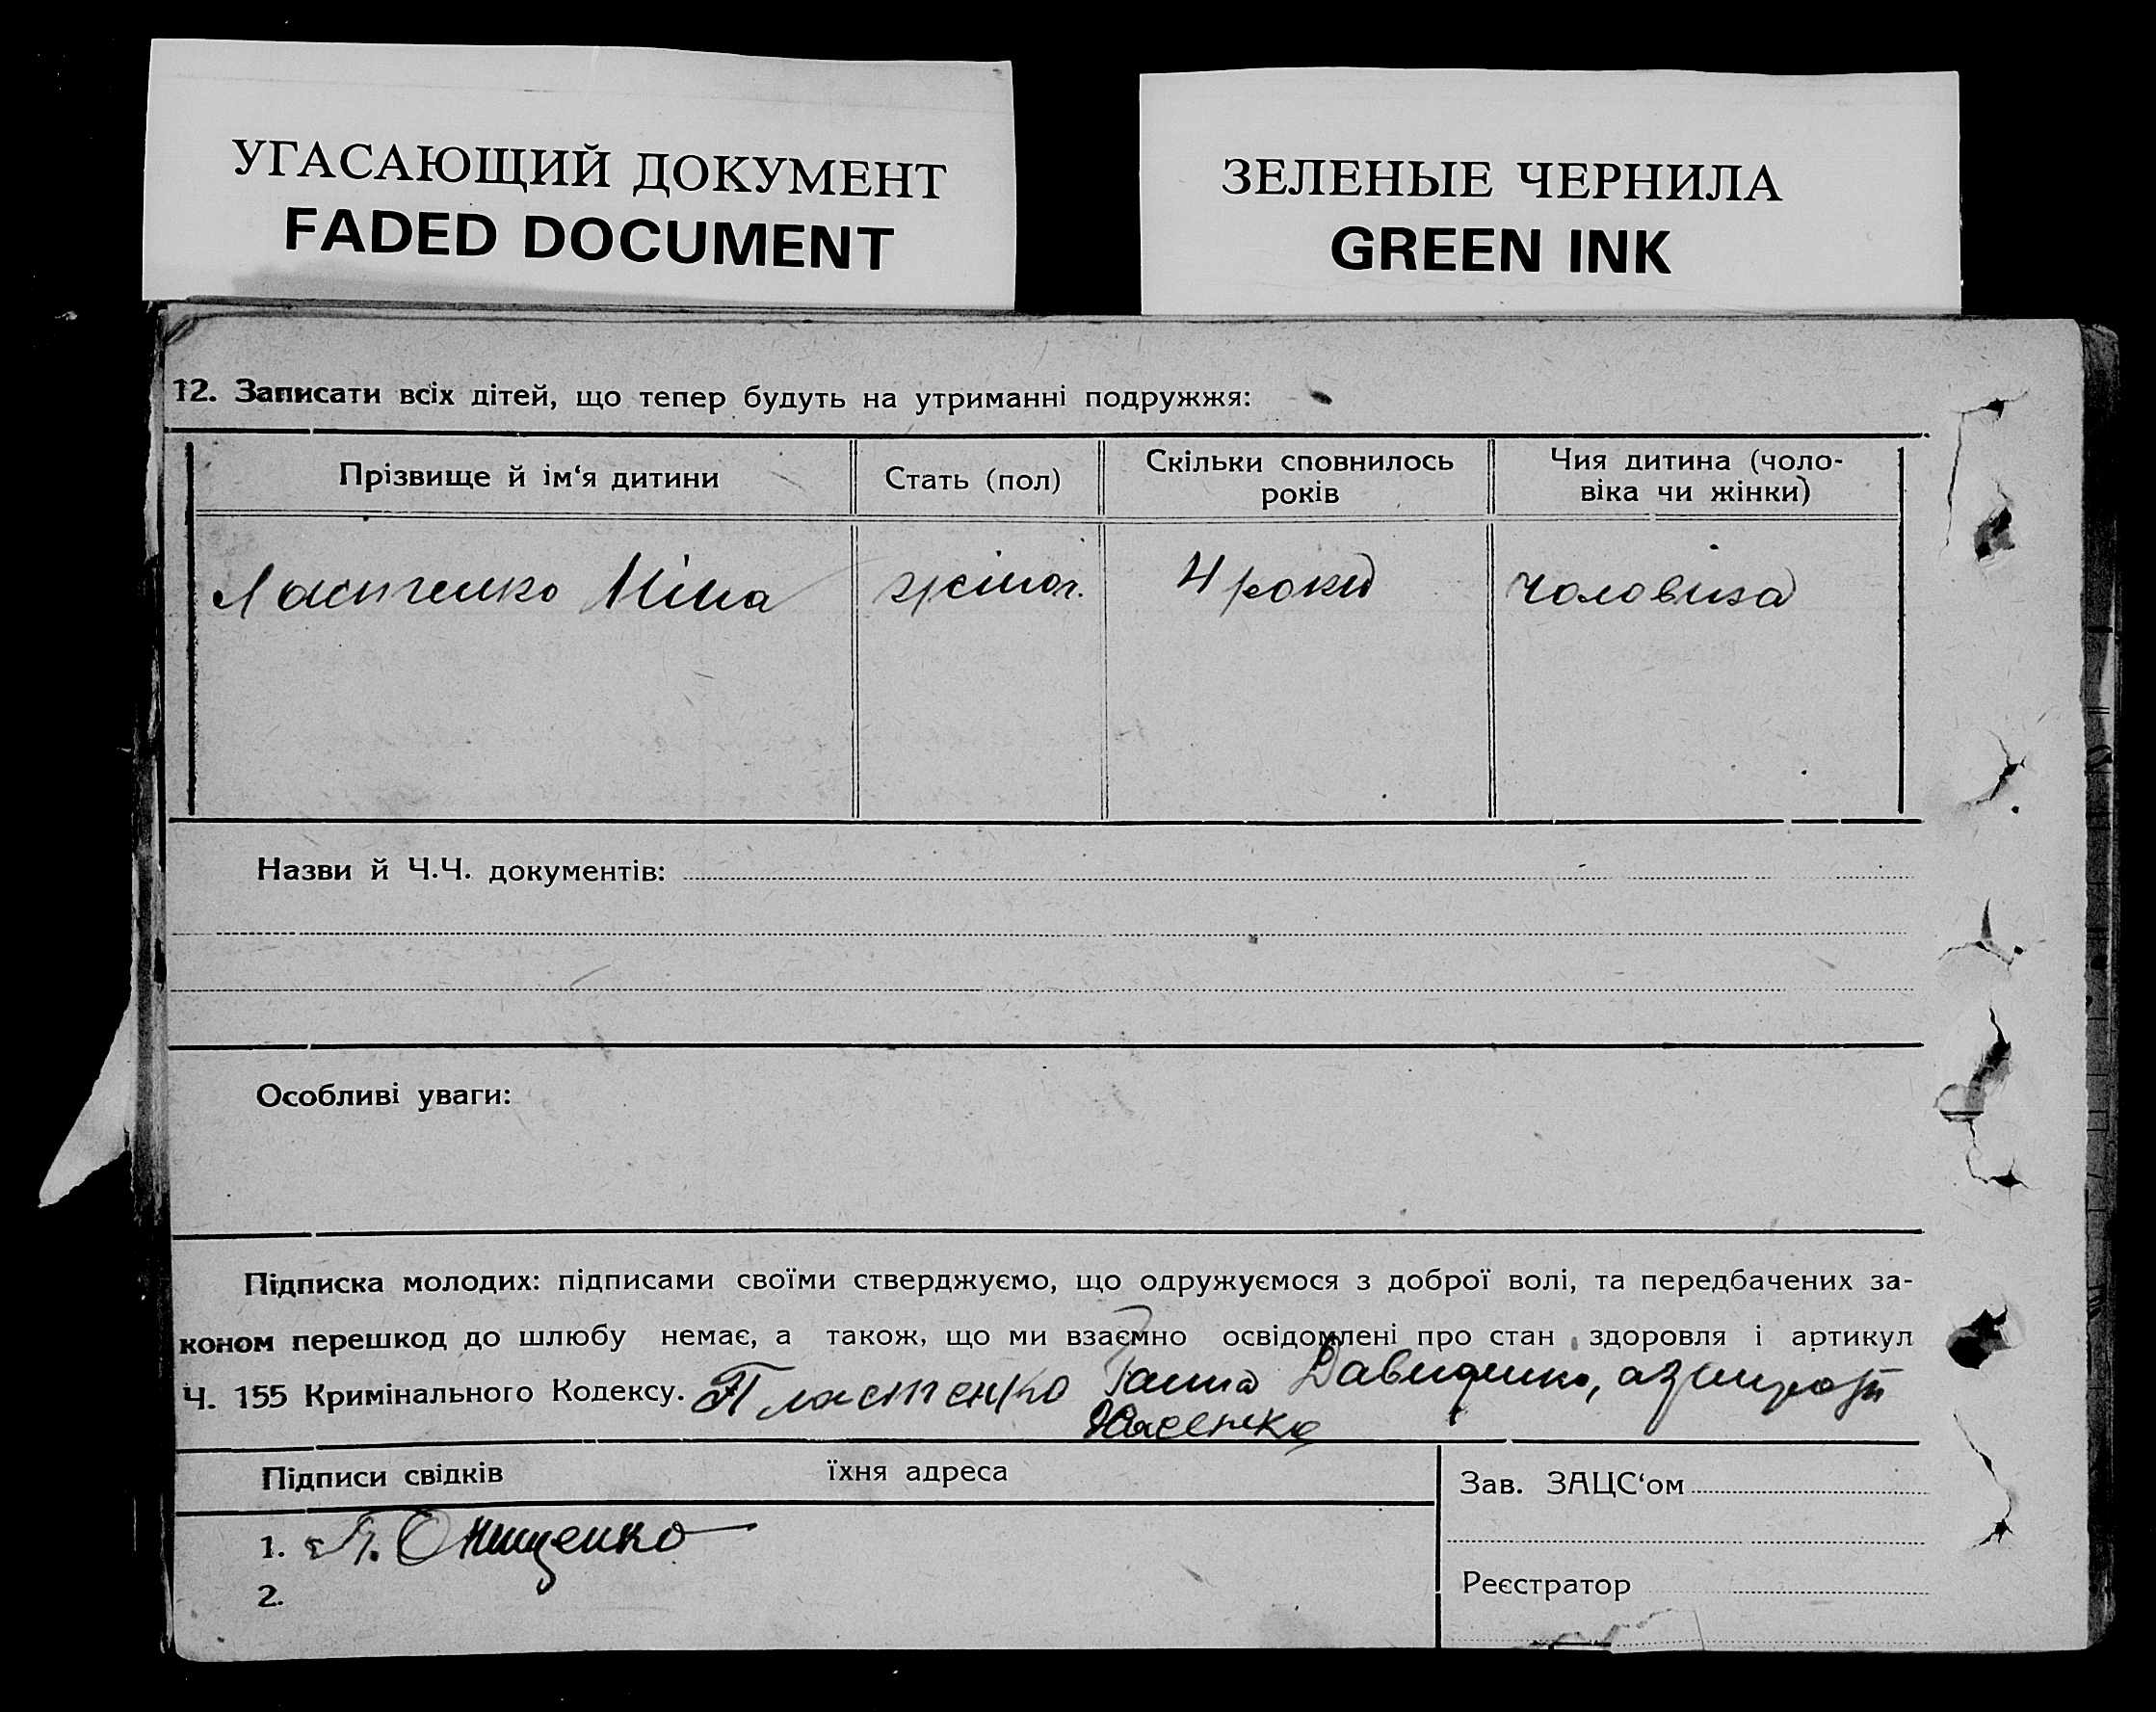 УГАСАЮЩИЙ ДОКУМЕНТ
FADED DOCUMENT
ЗЕЛЕНЫЕ ЧЕРНИЛА
GREEN INK
12. Записати всіх дітей, що тепер будуть на утриманні подружжя:
Прізвище й ім‘я дитини
Стать (пол)
Скільки сповнилось
років
Чия дитина (чоло-
віка чи жінки)
Ніна жіноч. 4 роки чоловіка
Назви й Ч.Ч. документів:
Особливі уваги:
Підписка молодих: підписами своїми стверджуємо, що одружуємося з доброї волі, та передбачених за-
коном перешкод до шлюбу немає, а також, що ми взаємно освідомлені про стан здоровля і артикул
Ч. 155 Кримінального Кодексу. Ганна
Підписи свідків
їхня адреса
Зав. ЗАЦС‘ом
1. П. Онищенко
2.
Реєстратор